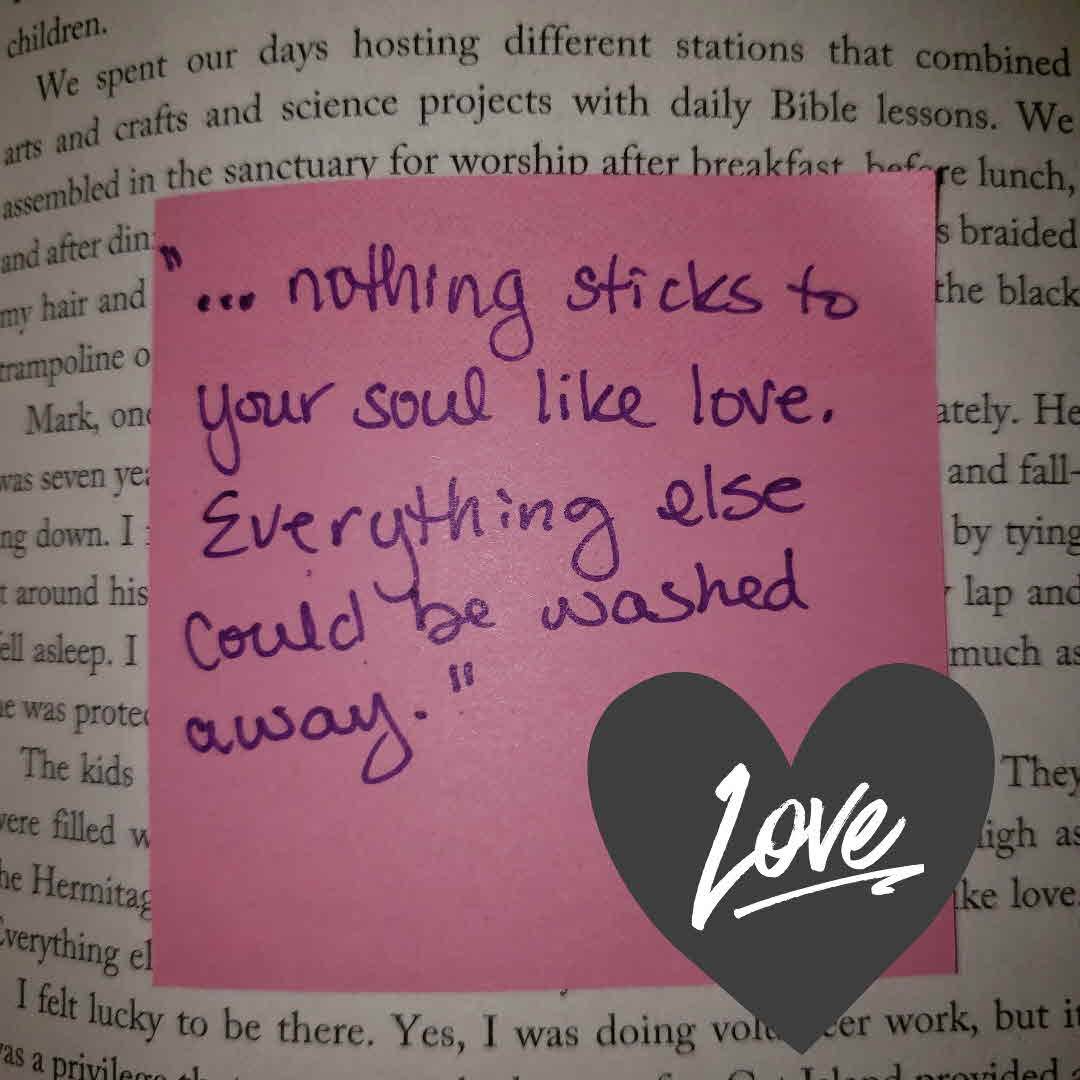 children.
We spent our days hosting different stations that combined
arts and crafts and science projects with daily Bible lessons. We
assembled in the sanctuary for worship after breakfast, before lunch,
and after din
s braided
my hair and
the black
trampoline o
Mark, one
ately. He
was seven yea
and fall-
ng down. I
by tying
t around his
lap and
ell asleep. I
much as
he was protec
The kids
They
were filled w
igh as
he Hermitag
ke love.
Everything el
I felt lucky to be there. Yes, I was doing volunteer work, but it
was a privilege
"... nothing sticks to
your soul like love.
Everything else
could be washed
away."
Love